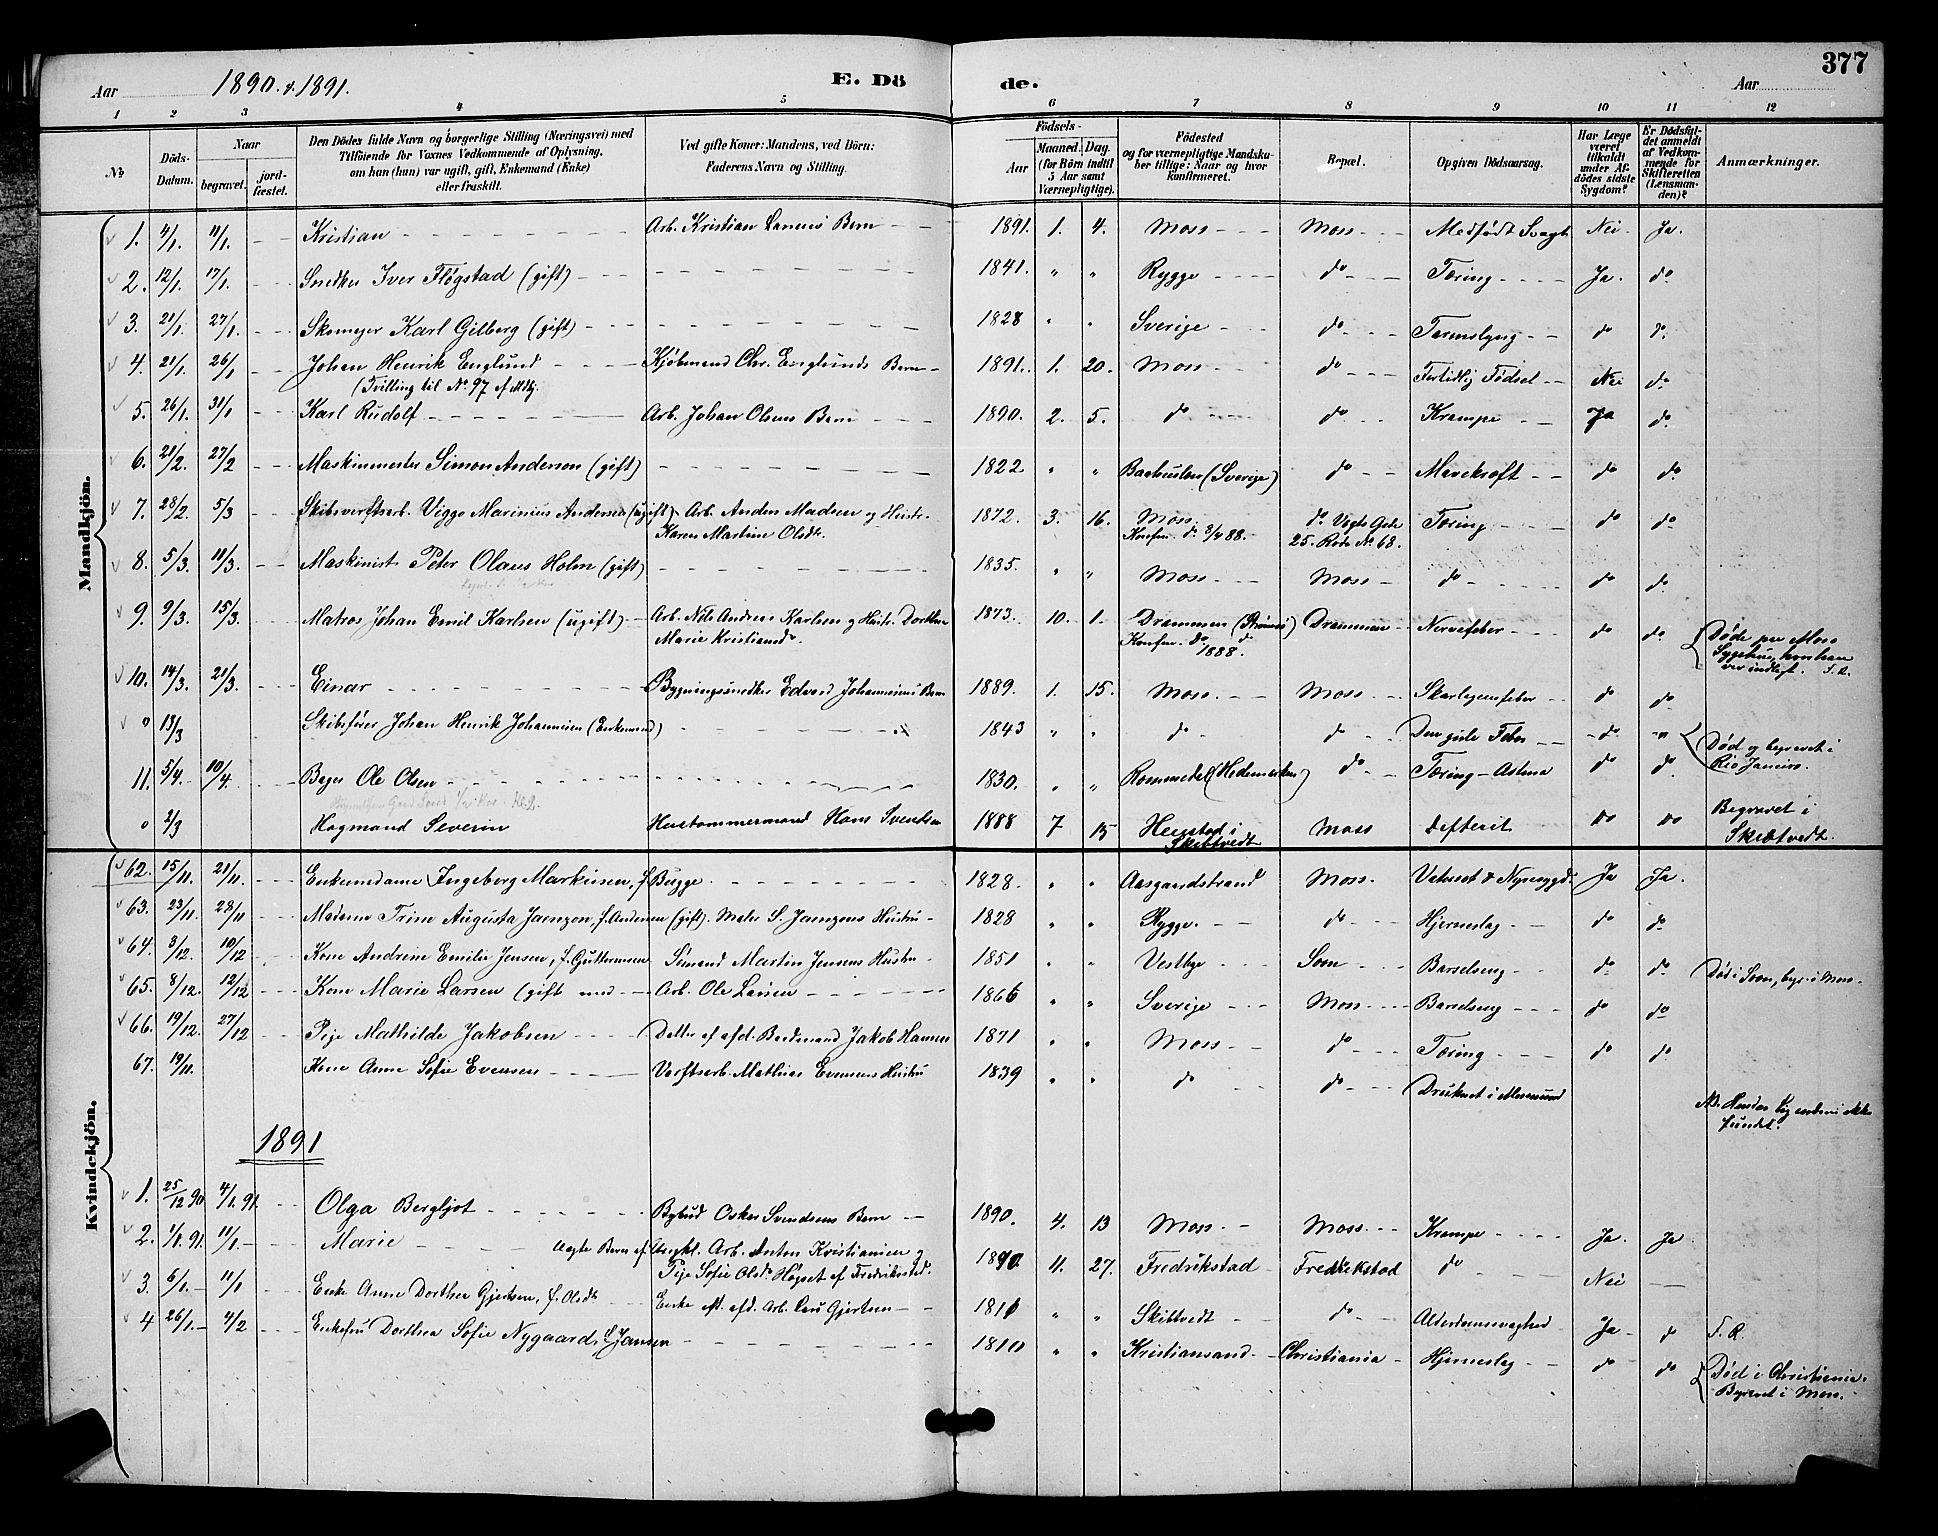 377
Aar 1890 & 1891. E. Dö de. Aar
1 2 3 4 5 6 7 8 9 10 11 12
No
Döds-Datum.
Naar
begravet.
jord-fæstet.
Den Dödes fulde Navn og borgerlige Stilling (Næringsvei) med
Tilföiende for Voxnes Vedkommende af Oplysning,
om han (hun) var ugift, gift, Enkemand (Enke)
eller fraskilt.
Ved gifte Koner: Mandens, ved Börn:
Faderens Navn og Stilling.
Födsels-
Aar
Maaned. Dag.
(for Börn indtil
5 Aar samt
Værnepligtige).
Födested
og for værnepligtige Mandska-
ber tillige: Naar og hvor
konfirmeret.
Bopæl.
Opgiven Dödsaarsag.
Har Læge
været
tilkaldt
under Af-
dödes sidste
Sygdom?
Er Dödsfal-
det anmeldt
af Vedkom-
mende for
Skifteretten
(Lensman-
den)?
Anmærkninger.
Mandkjön.
1. 4/1. 11/1. Kristian Arb. Kristian Larsens Barn 1891. 1. 4. Moss Moss Medfødt Svagh. Nei Ja.
2. 12/1. 17/1. Snedker Iver Fløgstad (gift) 1841. " " Rygge do Tæring Ja. do
3. 21/1. 27/1. Skomager Karl Gilberg (gift) 1828 " " Sverige do Tarmslyng do do
4. 21/1. 26/1 Johan Henrik Englund Kjøbmand Chr. Englunds Barn 1891. 1. 20. Moss do Fortidlig Fødsel Nei do
(Tvilling til No 97 af Mdkj.
5. 26/1. 31/1 Karl Rudolf Arb. Johan Olsens Barn 1890. 2. 5. do do Krampe Ja do
6. 21/2. 27/2 Maskinmester Simon Anderson (gift) 1822. " " Baahuslen (Sverige) do Mavekræft do do
7. 28/2. 5/3 Skibsverftsarb. Viggo Marinius Andersen (ugift) Arb. Anders Madsen og Hustr. 1872. 3. 16. Moss. do Vogts Gade Tæring do do
Karen Martine Olsdr. Konfm. do 8/4 88. 25. Rode No 68.
8. 5/3. 11/3. Maskinist Peter Olaus Holm (gift) 1835. " " Moss Moss do do do
9. 9/3. 15/3. Matros Johan Emil Karlsen (ugift) Arb. Nils Andreas Karlsen og Hustr. Dorthea 1873. 10. 1. Drammen (Strømsø) Drammen Nervefeber do do Døde paa Moss
Marie Kristiansdr. Konfm. do do 1888. Sygehus, hvor han
var indlagt. S. R.
10. 14/3. 21/3. Einar Bygningssnedker Edvard Johannesens Barn 1889. 1. 15. Moss Moss Skarlagensfeber do do
" 13/3 Skibsfører Johan Henrik Johannesen (Enkemand) 1843 " " do do Den gule Feber do " Død og begravet i
Rio Janeiro.
11. 5/4. 10/4. Bager Ole Olsen 1830. " " Rommedal (Hedemarken) do Tæring - Astma do do
" 2/3 Hagmand Severin Hustømmermand Hans Svendsen 1888 7 15 Heistad i Moss Difterit do do Begravet i
Skibtvedt Skibtvedt.
Kvindekjön.
62. 15/11. 21/11. Enkemadame Ingeborg Markusen, f. Bugge 1828. " " Aasgaardstrand Moss. Vatersot & Nyresygd. Ja Ja.
63. 23/11. 28/11 Madame Trine Augusta Jaenzon, f. Andersen (gift). Maler S. Jaenzons Hustru 1828 " " Rygge. do Hjerneslag do do
64. 3/12. 10/12 Kone Andrine Emilie Jensen, f. Guttormsen Sømand Martin Jensens Hustru 1851 " " Vestby Soon Barselseng do do Død i Soon, begr. i Moss.
65. 8/12. 12/12 Kone Marie Larsen (gift med Arb. Ole Larsen 1866 " " Sverige Moss. Barselseng do do
66. 19/12. 27/12 Pige Mathilde Jakobsen Datter af afd. Bødsmand Jakob Hansen 1871 " " Moss do Tæring do do
67. 19/11. Kone Anne Sofie Evensen Verftsarb. Mathias Evensens Hustru 1839 " " do do Druknet i Mossesund
NB. Hendes Lig endnu ikke
fundet.
1891
1. 25/12 90 4/1. 91. Olga Bergljot Bybud Oskar Svendsens Barn 1890. 4. 13 Moss Moss Krampe Ja. Ja
2. 1/1. 91. 11/1. Marie Uægte Barn af Ungkl. Arb. Anton Kristiansen og 1890. 11. 27. Fredrikstad Fredrikstad do Nei
Pige Sofie Olsdr. Høgset af Fredrikstad.
3. 6/1. 11/1 Enke Anne Dorthea Gjertsen, f. Olsdr. Enke ef. afd. Arb. Lars Gjertsen 1811 " " Skibtvedt do Alderdomssvaghed Ja do S. R.
4 26/1. 4/2 Enkefru Dorthea Sofie Nygaard, f. Jansen 1810 " " Kristiansand Christiania Hjerneslag do do Død i Christiania.
Begravet i Moss.